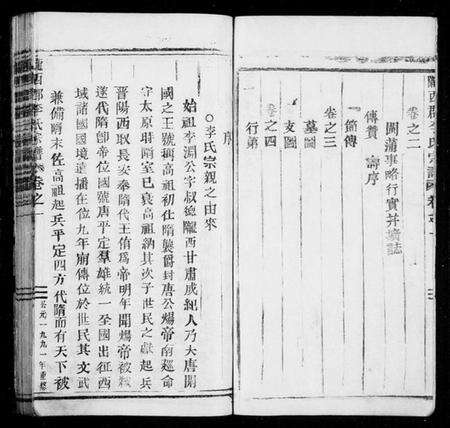 隴西郡李氏宗譜 卷之一
卷之二
開蒲事略行實并墓誌
傳贊 壽序
一箭傳
卷之三
墓圖
支圖
卷之四
行第
序
○李氏宗親之由來
始祖李淵公字叔德隴西甘肅成紀人乃大唐開
國之王號稱高祖初仕隋襲爵封唐公煬帝南廵命
守太原時隋室已衰高祖納其次子世民之獻起兵
晉陽西取長安奉隋代王侑爲帝明年聞煬帝被弒
遂代隋卽帝位國號唐平定羣雄統一全國出征西
域諸國國境遠播在位九年崩傳位於世民其文武
兼備隋末佐高祖起兵平定四方代隋而有天下被
隴西郡李氏宗譜 卷之一
公元一九九一年重修